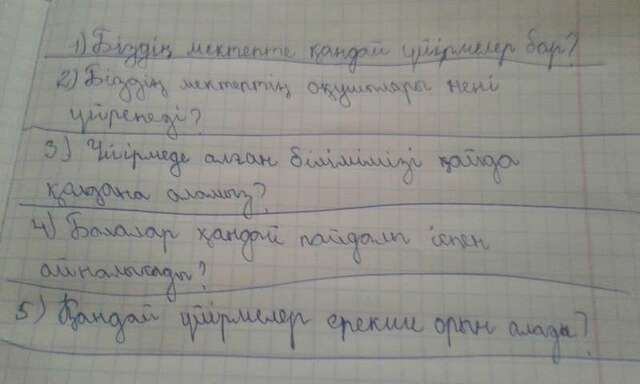 1) Біздің мектепте қандай үйірмелер бар?
2) Біздің мектептің оқушылары нені
үйренеді?
3) Үйірмеде алған білімімізді қайда
қолдана аламыз?
4) Балалар қандай пайдалы іспен
айналысады?
5) Қандай үйірмелер ерекше орын алады?